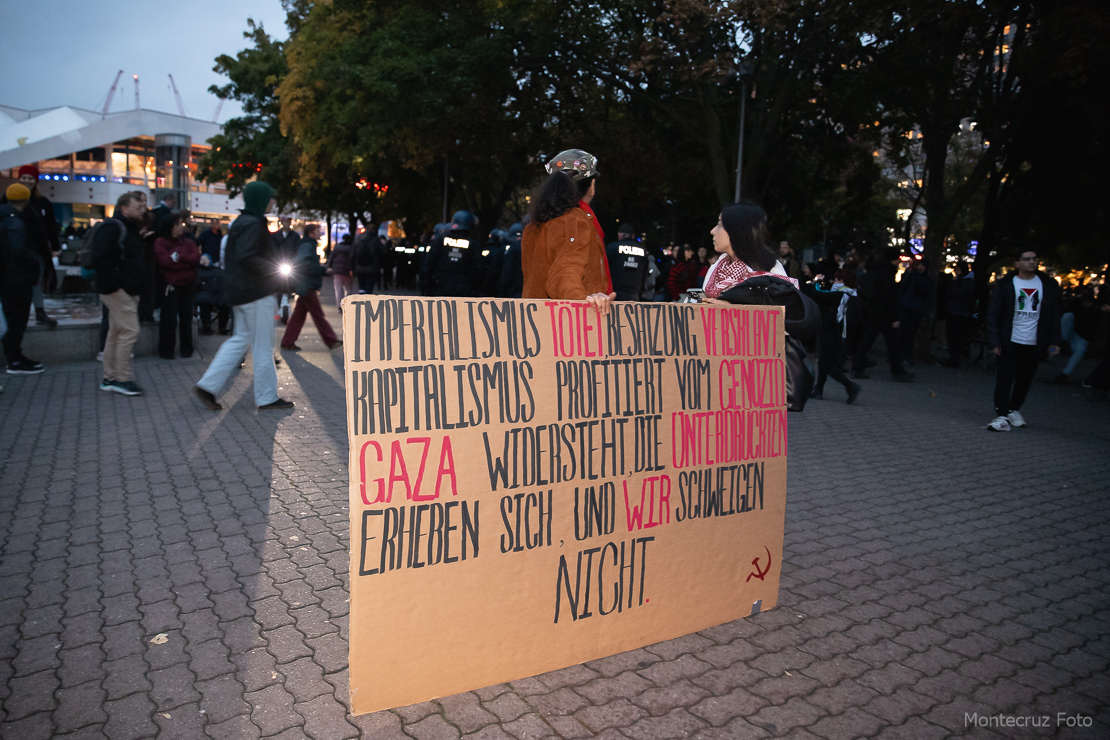 POLIZEI
POLIZEI
IMPERIALISMUS TÖTET, BESATZUNG VERSKLAVT,
KAPITALISMUS PROFITIERT VOM GENOZID.
GAZA WIDERSTEHT, DIE UNTERDRÜCKTEN
ERHEBEN SICH, UND WIR SCHWEIGEN
NICHT.
FREE
Montecruz Foto